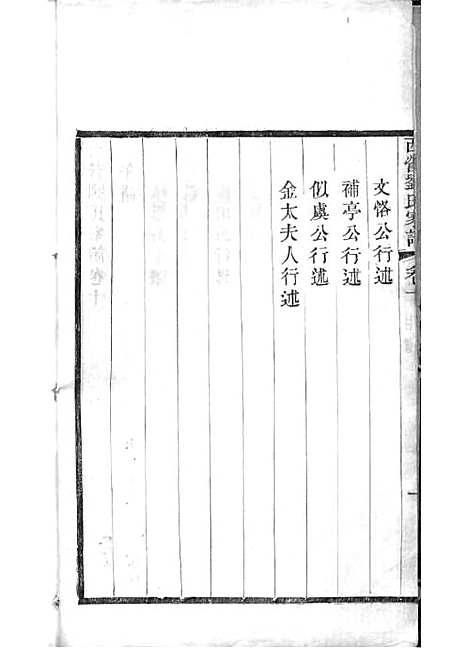 文恪公行述
補亭公行述
似虞公行述
金太夫人行述
西營劉氏家譜
卷
一